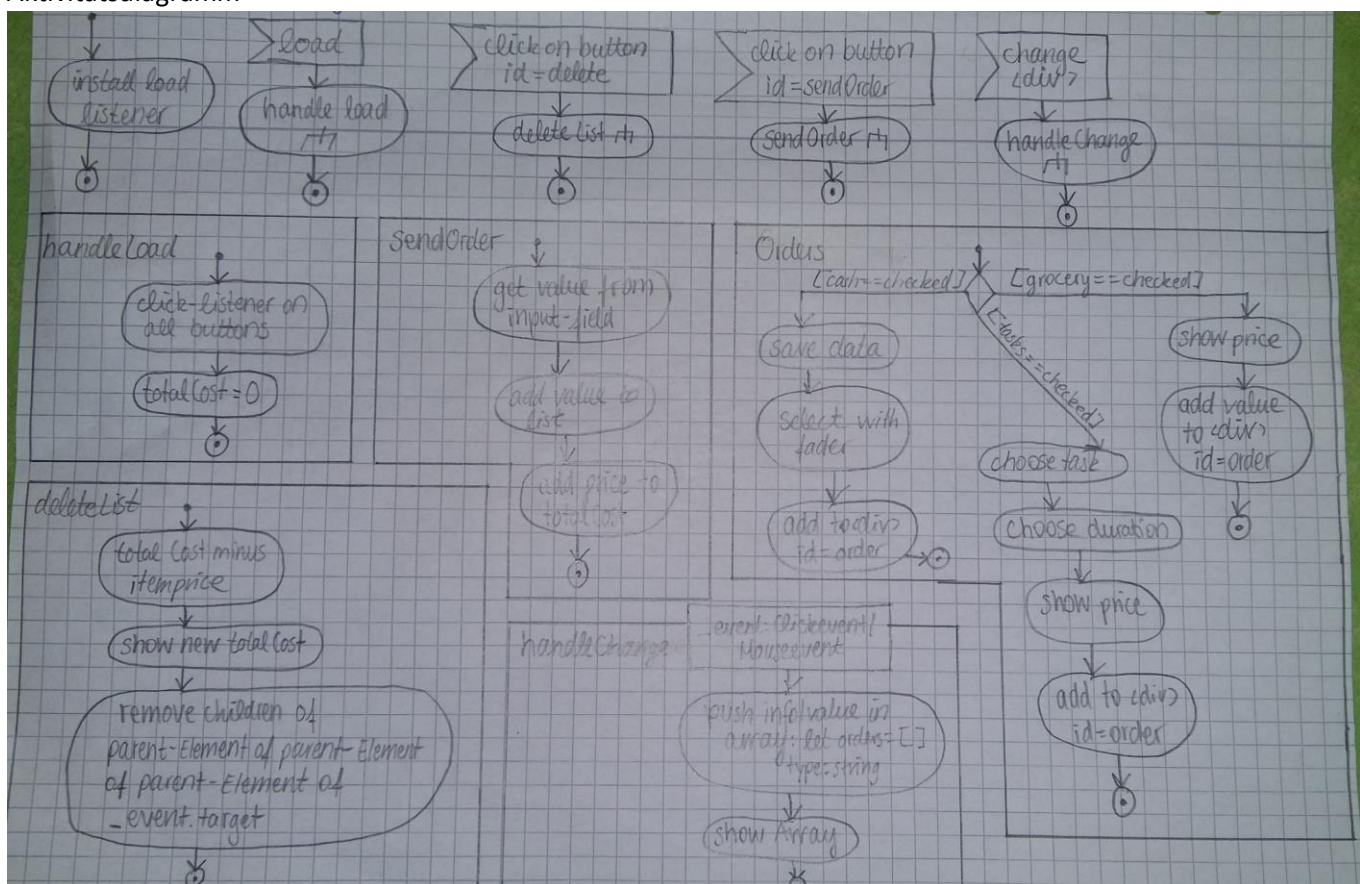 Aktivitätsdiagramm
install load
listener
load
handle load
click on button
id=delete
deleteList
click on button
id=sendOrder
sendOrder
change
<div>
handleChange
handleLoad
click-listener on
all buttons
totalCost=0
SendOrder
get value from
input-field
add value to
list
add price to
totalCost
Orders
[cash==checked]
[grocery==checked]
[tasks==checked]
save data
select with
fader
add to <div>
id=order
choose task
choose duration
show price
add to <div>
id=order
show price
add value
to <div>
id=order
deleteList
total Cost minus
itemprice
show new totalCost
remove children of
parent-Element of parent-Element
of parent-Element of
_event.target
handleChange
_event: Clickevent/
Mouseevent
push info/value in
array: let orders=[]
type=string
show Array